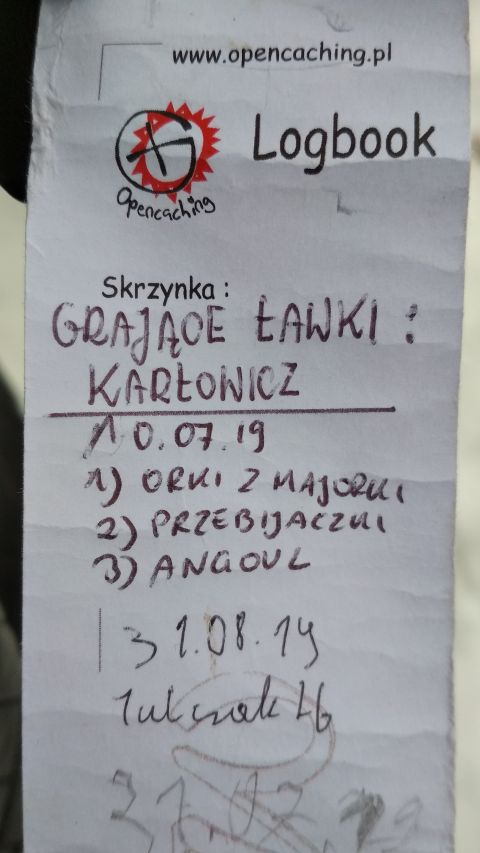 www.opencaching.pl
Logbook
Opencaching
Skrzynka :
GRAJĄCE ŁAWKI :
KARŁOWICZ
10.07.19
1) ORKI Z MAJORKI
2) PRZEBIJACZKI
3) ANGOUL
31.08.19